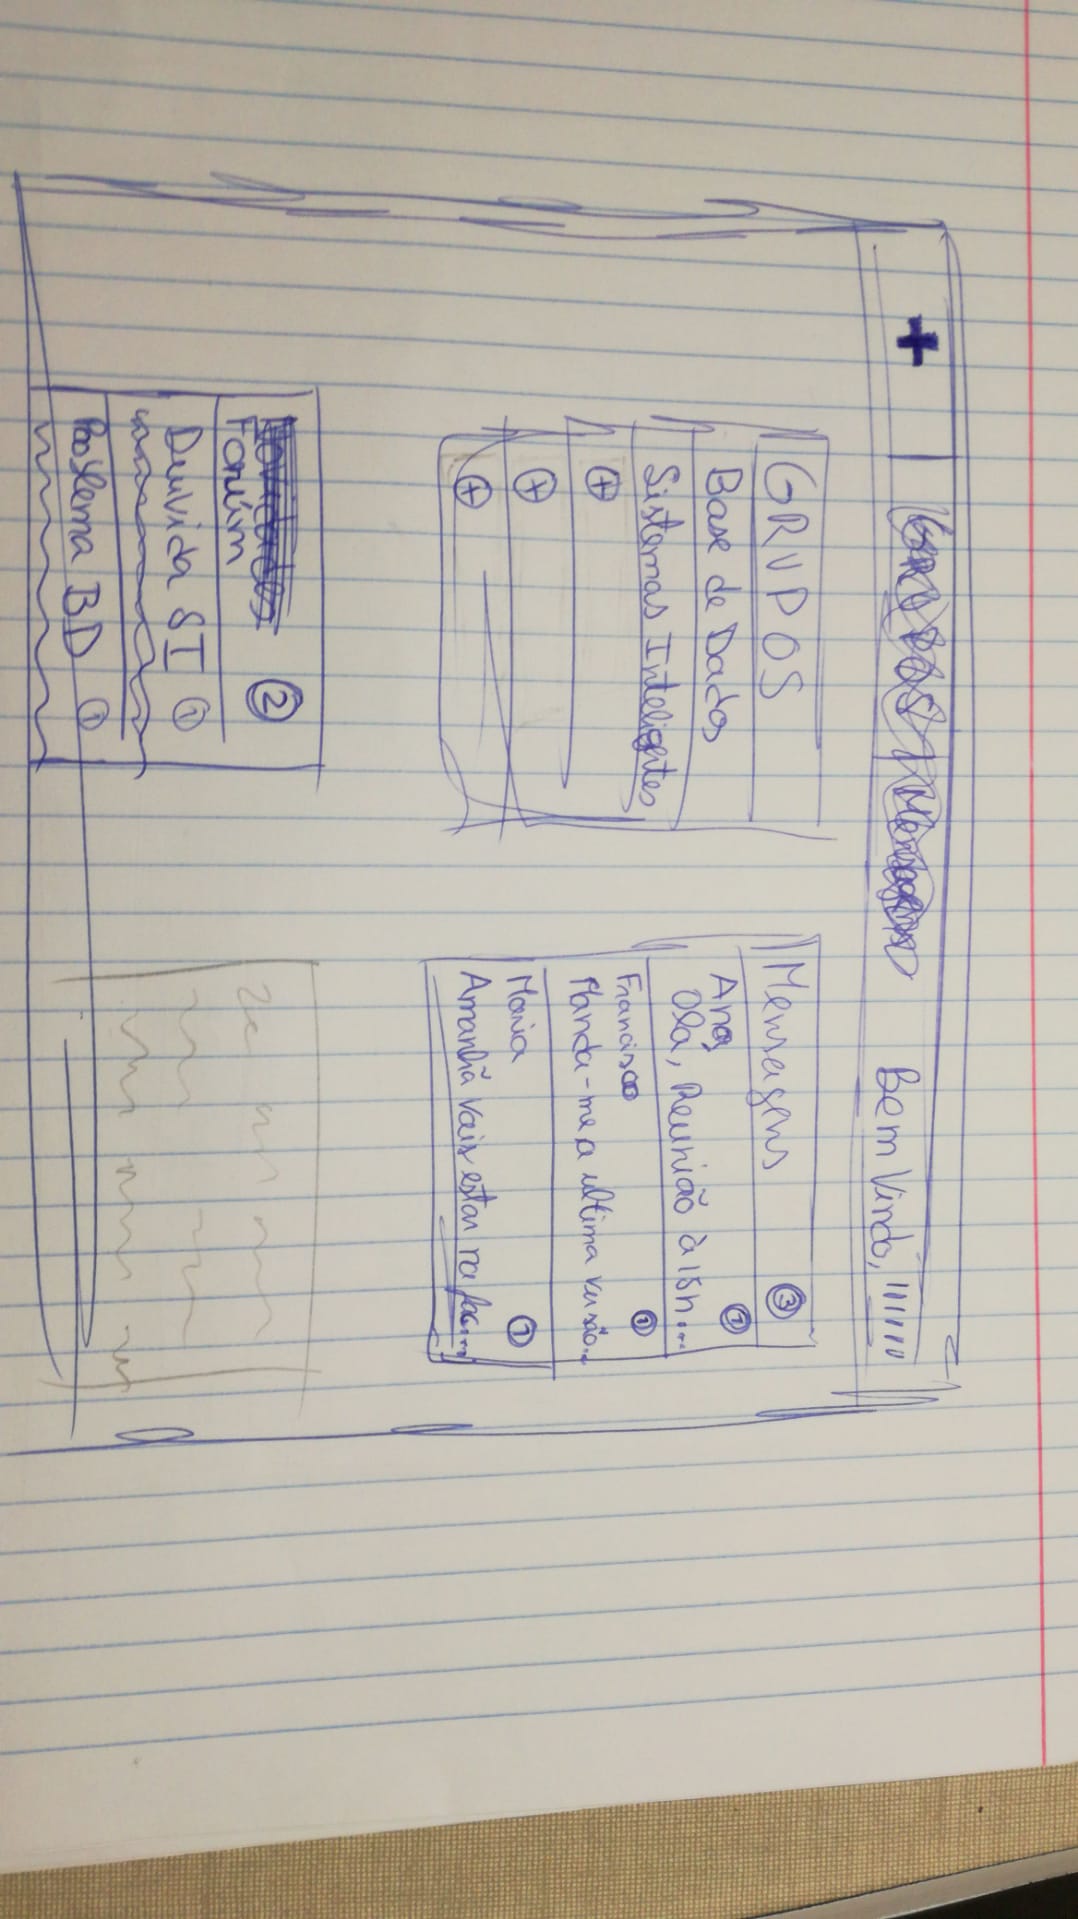 + GRUPOS Mensagens Bem Vindo,
GRUPOS
Base de Dados
Sistemas Inteligentes
+
+
+
Mensagens 3
Ana 1
Olá, Reunião à 15h...
Francisco 1
Manda-me a ultima versão..
Maria 1
Amanhã vais estar na fac....
Novidades 2
Forúm
Duvida SI 1
Problema BD 1